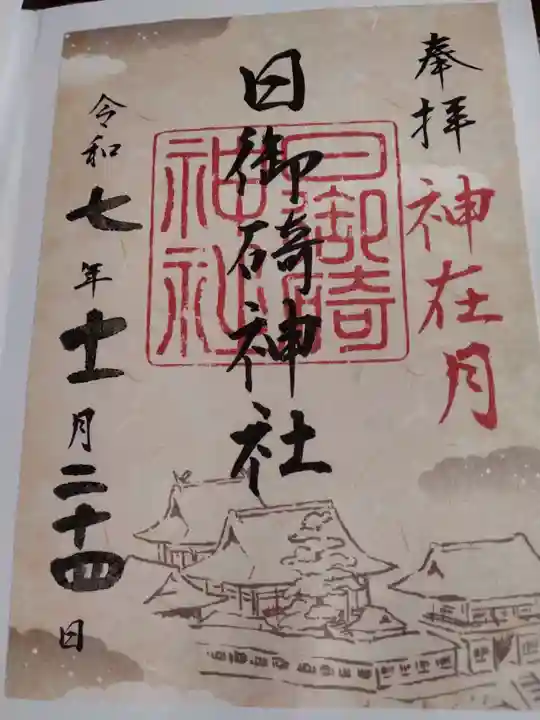 奉拝
神在月
日御碕神社
日御碕
神社
令和七年十一月二十四日